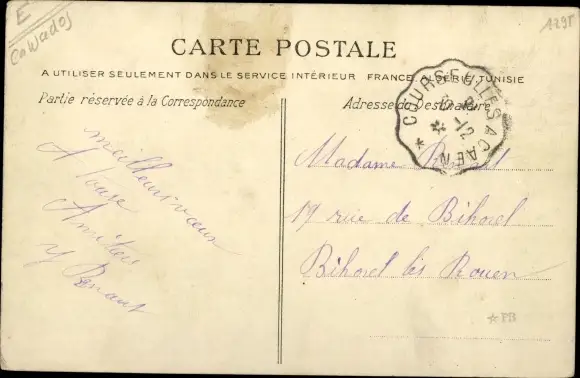 E
Calvados
1295
CARTE POSTALE
A UTILISER SEULEMENT DANS LE SERVICE INTÉRIEUR FRANCE, ALGÉRIE, TUNISIE
Partie réservée à la Correspondance
Adresse du Destinataire
COURSEULLES A CAEN
12
meilleurs vœux
Amitiés
Y Renault
Madame Renault
17 rue de Bihorel
Bihorel lès Rouen
PB